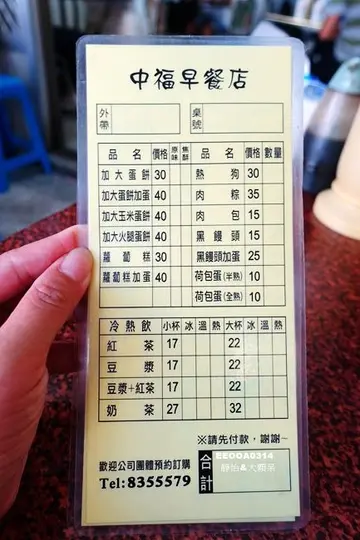 中福早餐店
外帶 桌號
品名 價格 原味 焦酥 品名 價格 數量
加大蛋餅 30 熱狗 30
加大蛋餅加蛋 40 肉粽 35
加大玉米蛋餅 40 肉包 15
加大火腿蛋餅 40 黑饅頭 15
蘿蔔糕 30 黑饅頭加蛋 25
蘿蔔糕加蛋 40 荷包蛋(半熟) 10
荷包蛋(全熟) 10
冷熱飲 小杯 冰 溫 熱 大杯 冰 溫 熱
紅茶 17 22
豆漿 17 22
豆漿+紅茶 17 22
奶茶 27 32
※請先付款，謝謝~
歡迎公司團體預約訂購
Tel:8355579
合計
EEOOA0314